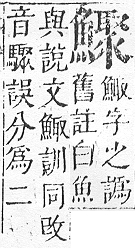 鯫字之譌
舊註白魚
與說文鯫訓同改
音驟誤分爲二